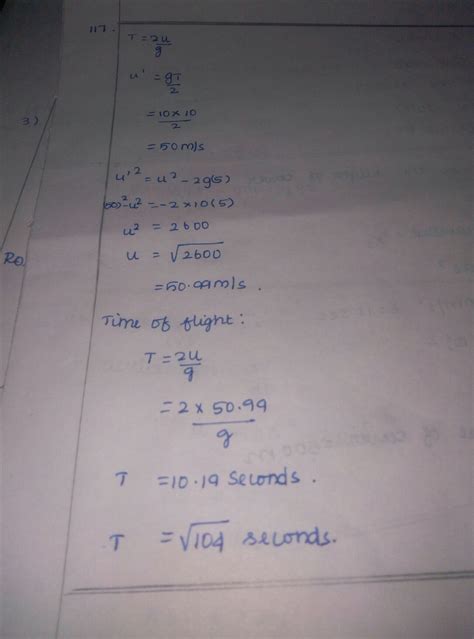 117.
T = 2u/g
u' = gT/2
3)
= 10 × 10/2
= 50 m/s
u'² = u² - 2g(5)
(50)² - u² = -2 × 10 (5)
u² = 2600
RO
u = √2600
= 50.99 m/s.
Time of flight:
T = 2u/g
= 2 × 50.99/g
T = 10.19 seconds.
T = √104 seconds.